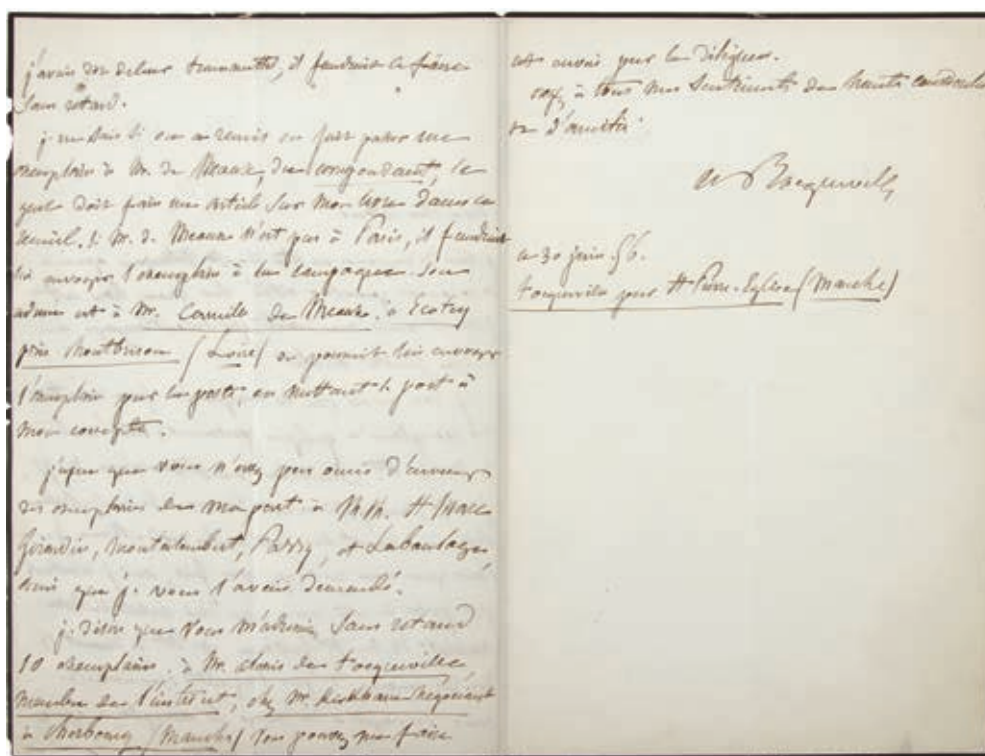 j'avais dit de leur transmettre, il faudrait le faire
sans retard.
je ne sais si on a remis ou fait passer un
exemplaire à Mr. de Meaux, du correspondant, le
quel doit faire un article sur mon livre dans ce
recueil. Si Mr. de Meaux n'est pas à Paris, il faudrait
lui envoyer l'exemplaire à la campagne. Son
adresse est à Mr. Camille de Meaux à Ecotay
près Montbrison (Loire) on pourrait lui envoyer
l'exemplaire par la poste, en mettant le port à
mon compte.
j'espère que vous n'avez pas omis d'envoyer
des exemplaires de ma part à MM. St Marc
Girardin, Montalembert, Passy, et Laboulaye,
ainsi que je vous l'avais demandé.
je désire que vous m'adressiez sans retard
10 exemplaires à Mr. alexis de tocqueville
membre de l'institut, chez Mr. négociant
à Cherbourg (Manche) vous pouvez me faire
cet envoi par la diligence.
à tous mes sentiments de haute considération
et d'amitié.
A de Tocqueville
ce 30 juin 56.
tocqueville par St Pierre-Eglise (Manche)